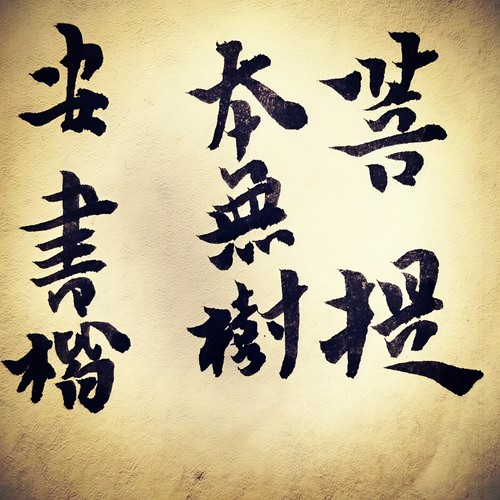 菩提
本無樹
安書橋